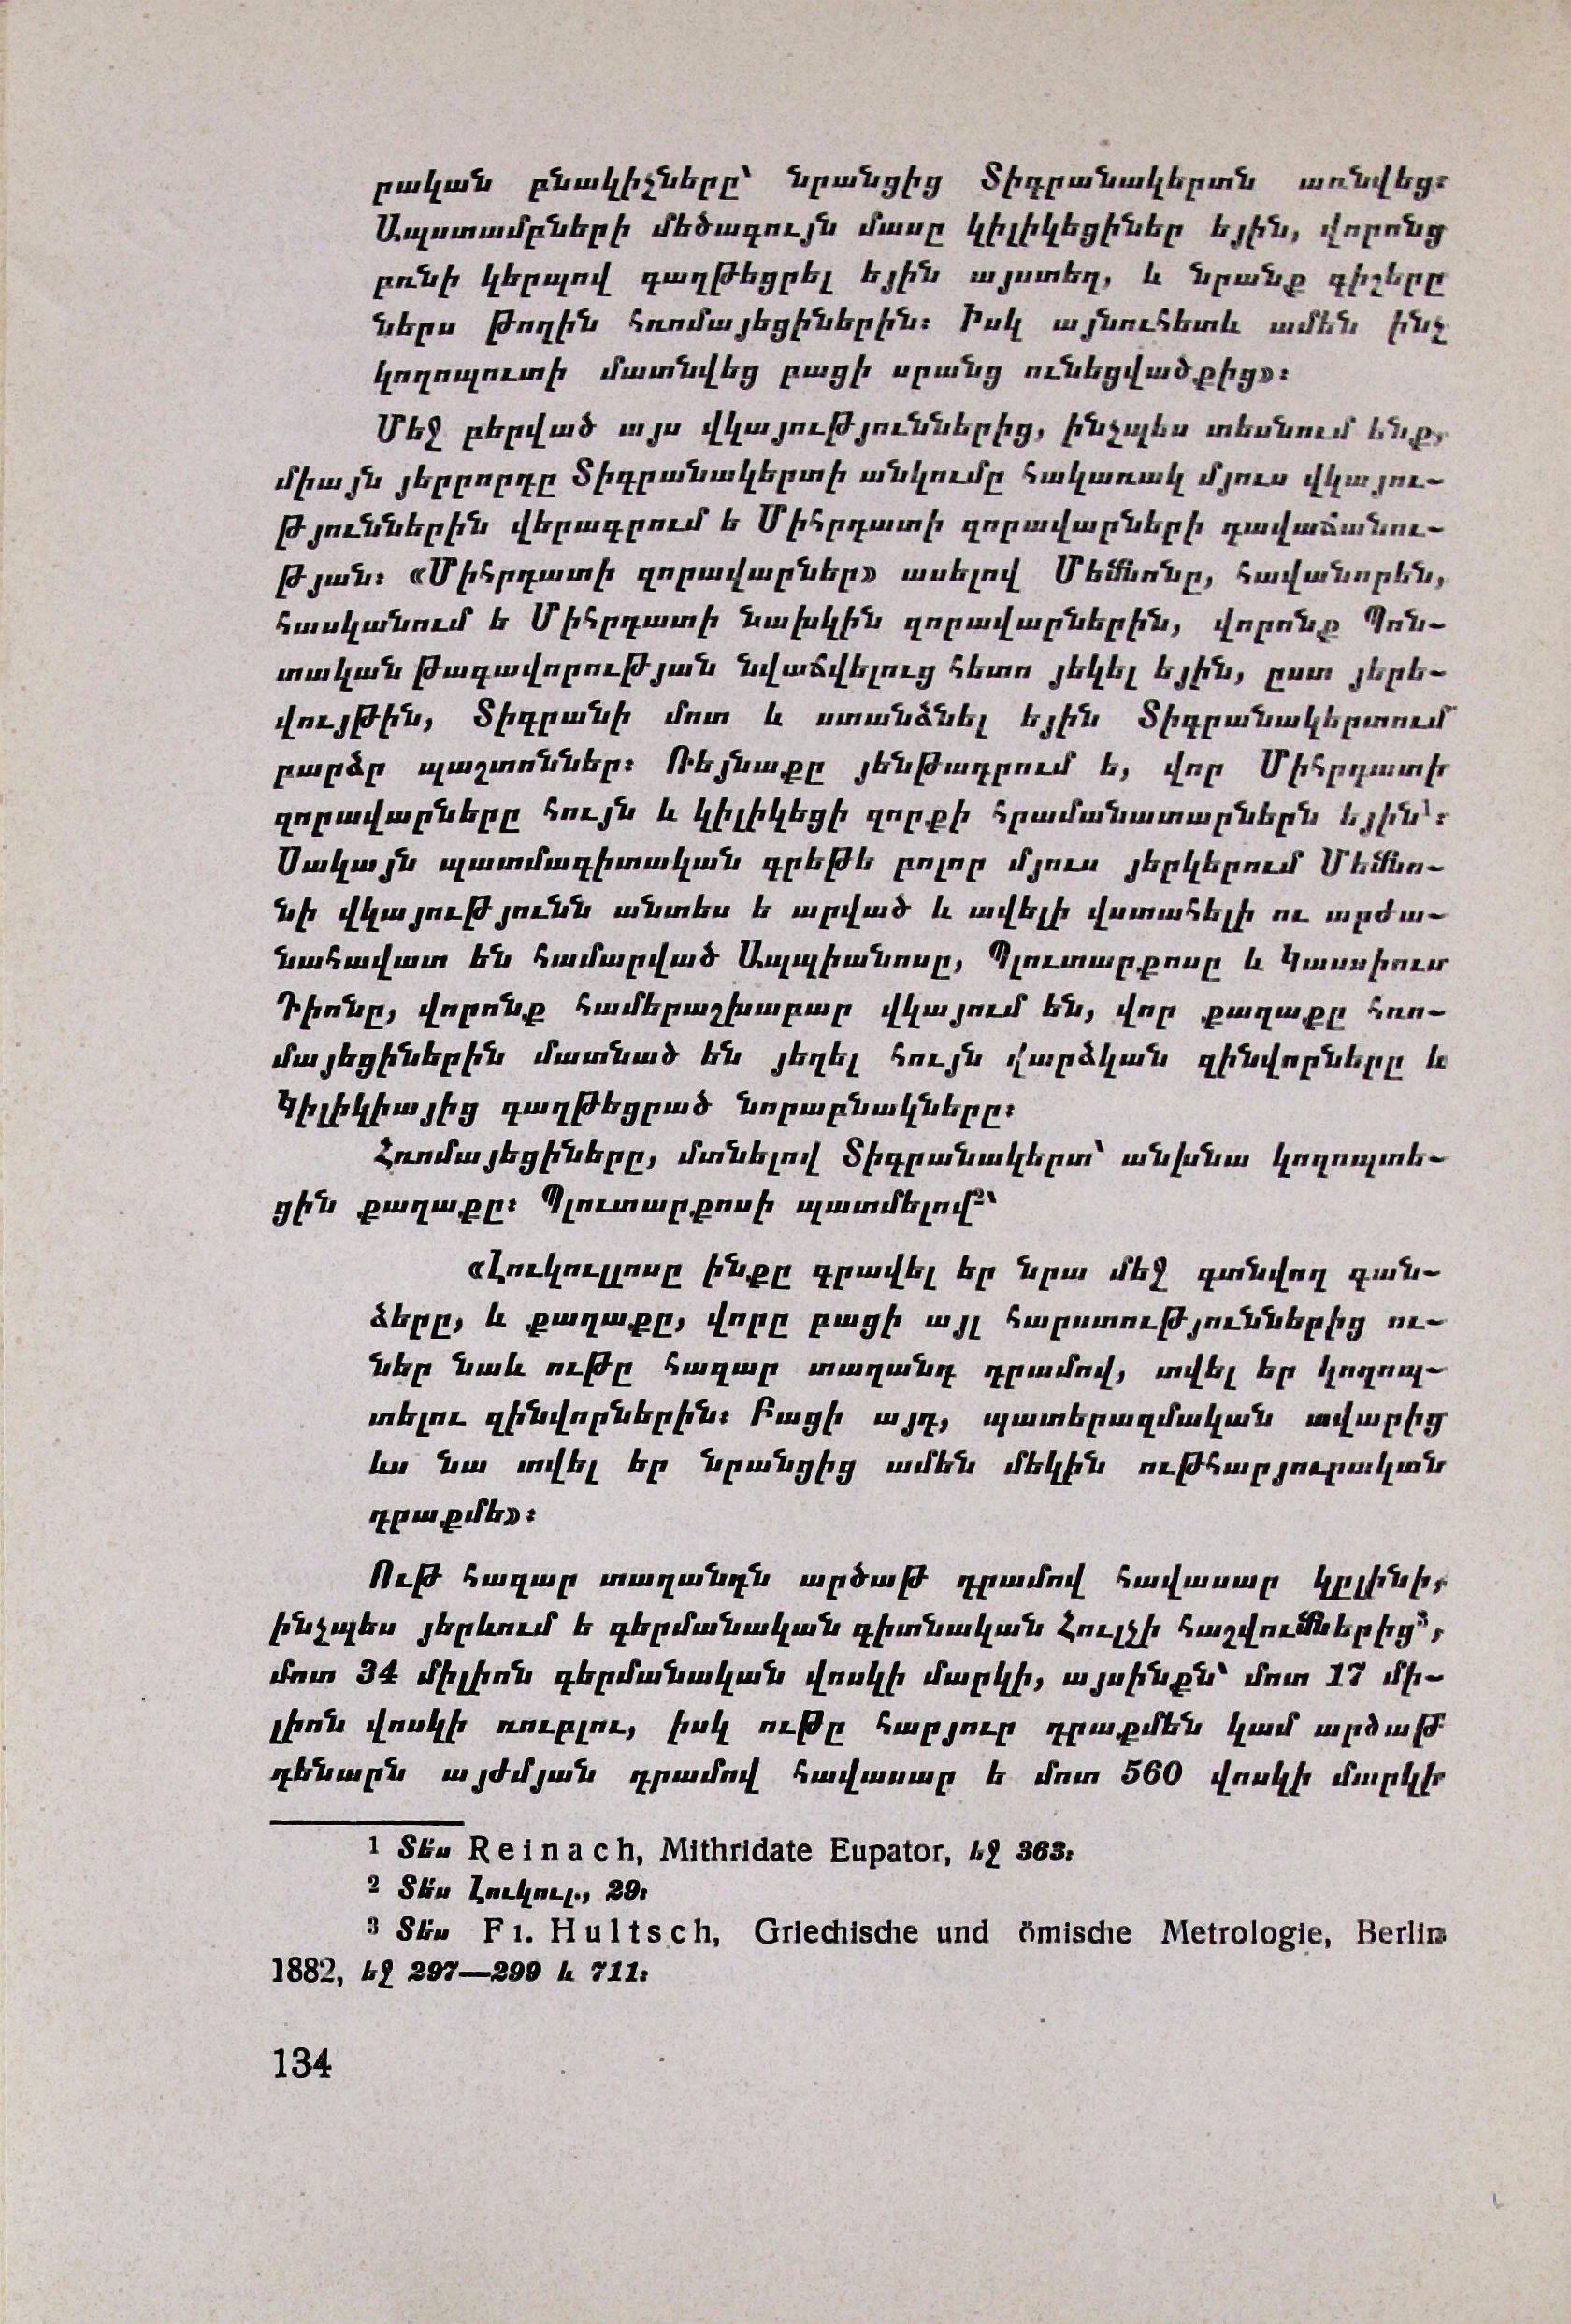 րական բնակիչները՝ նրանցից Տիգրանակերտն առնվեց։
Ապստամբների մեծագույն մասը կիլիկեցիներ եյին, վորոնց
բռնի կերպով գաղթեցրել եյին այստեղ, և նրանք գիշերը
ներս թողին հռոմայեցիներին։ Իսկ այնուհետև ամեն ինչ
կողոպուտի մատնվեց բացի սրանց ունեցվածքից»։
Մեջ բերված այս վկայություններից, ինչպես տեսնում ենք,
միայն յերրորդը Տիգրանակերտի անկումը հակառակ մյուս վկայու-
թյուններին վերագրում ե Միհրդատի զորավարների դավաճանու-
թյան։ «Միհրդատի զորավարներ» ասելով Մեմնոնը, հավանորեն,
հասկանում ե Միհրդատի նախկին զորավարներին, վորոնք Պոն-
տական թագավորության նվաճվելուց հետո յեկել եյին, ըստ յերե-
վույթին, Տիգրանի մոտ և ստանձնել եյին Տիգրանակերտում
բարձր պաշտոններ։ Ռեյնաքը յենթադրում ե, վոր Միհրդատի
զորավարները հույն և կիլիկեցի զորքի հրամանատարներն եյին¹։
Սակայն պատմագիտական գրեթե բոլոր մյուս յերկերում Մեմնո-
նի վկայությունն անտես ե արված և ավելի վստահելի ու արժա-
նահավատ են համարված Ապպիանոսը, Պլուտարքոսը և Կասսիուս
Դիոնը, վորոնք համերաշխաբար վկայում են, վոր քաղաքը հռո-
մայեցիներին մատնած են յեղել հույն վարձկան զինվորները և
Կիլիկիայից գաղթեցրած նորաբնակները։
Հռոմայեցիները, մտնելով Տիգրանակերտ՝ անխնա կողոպտե-
ցին քաղաքը։ Պլուտարքոսի պատմելով²՝
«Լուկուլլոսը ինքը գրավել եր նրա մեջ գտնվող գան-
ձերը, և քաղաքը, վորը բացի այլ հարստություններից ու-
ներ նաև ութը հազար տաղանդ դրամով, տվել եր կողոպ-
տելու զինվորներին։ Բացի այդ, պատերազմական ավարից
ևս նա տվել եր նրանցից ամեն մեկին ութհարյուրական
դրաքմե»։
Ութ հազար տաղանդն արծաթ դրամով հավասար կըլինի,
ինչպես յերևում ե գերմանական գիտնական Հուլչի հաշվումներից³,
մոտ 34 միլիոն գերմանական վոսկի մարկի, այսինքն՝ մոտ 17 մի-
լիոն վոսկի ռուբլու, իսկ ութը հարյուր դրաքմեն կամ արծաթ
դենարն այժմյան դրամով հավասար ե մոտ 560 վոսկի մարկի
1 Տե՛ս Reinach, Mithridate Eupator, եջ 363։
2 Տե՛ս Լուկուլ., 29։
3 Տե՛ս Fr. Hultsch, Griechische und ömische Metrologie, Berlin
1882, եջ 297—299 և 711։
134